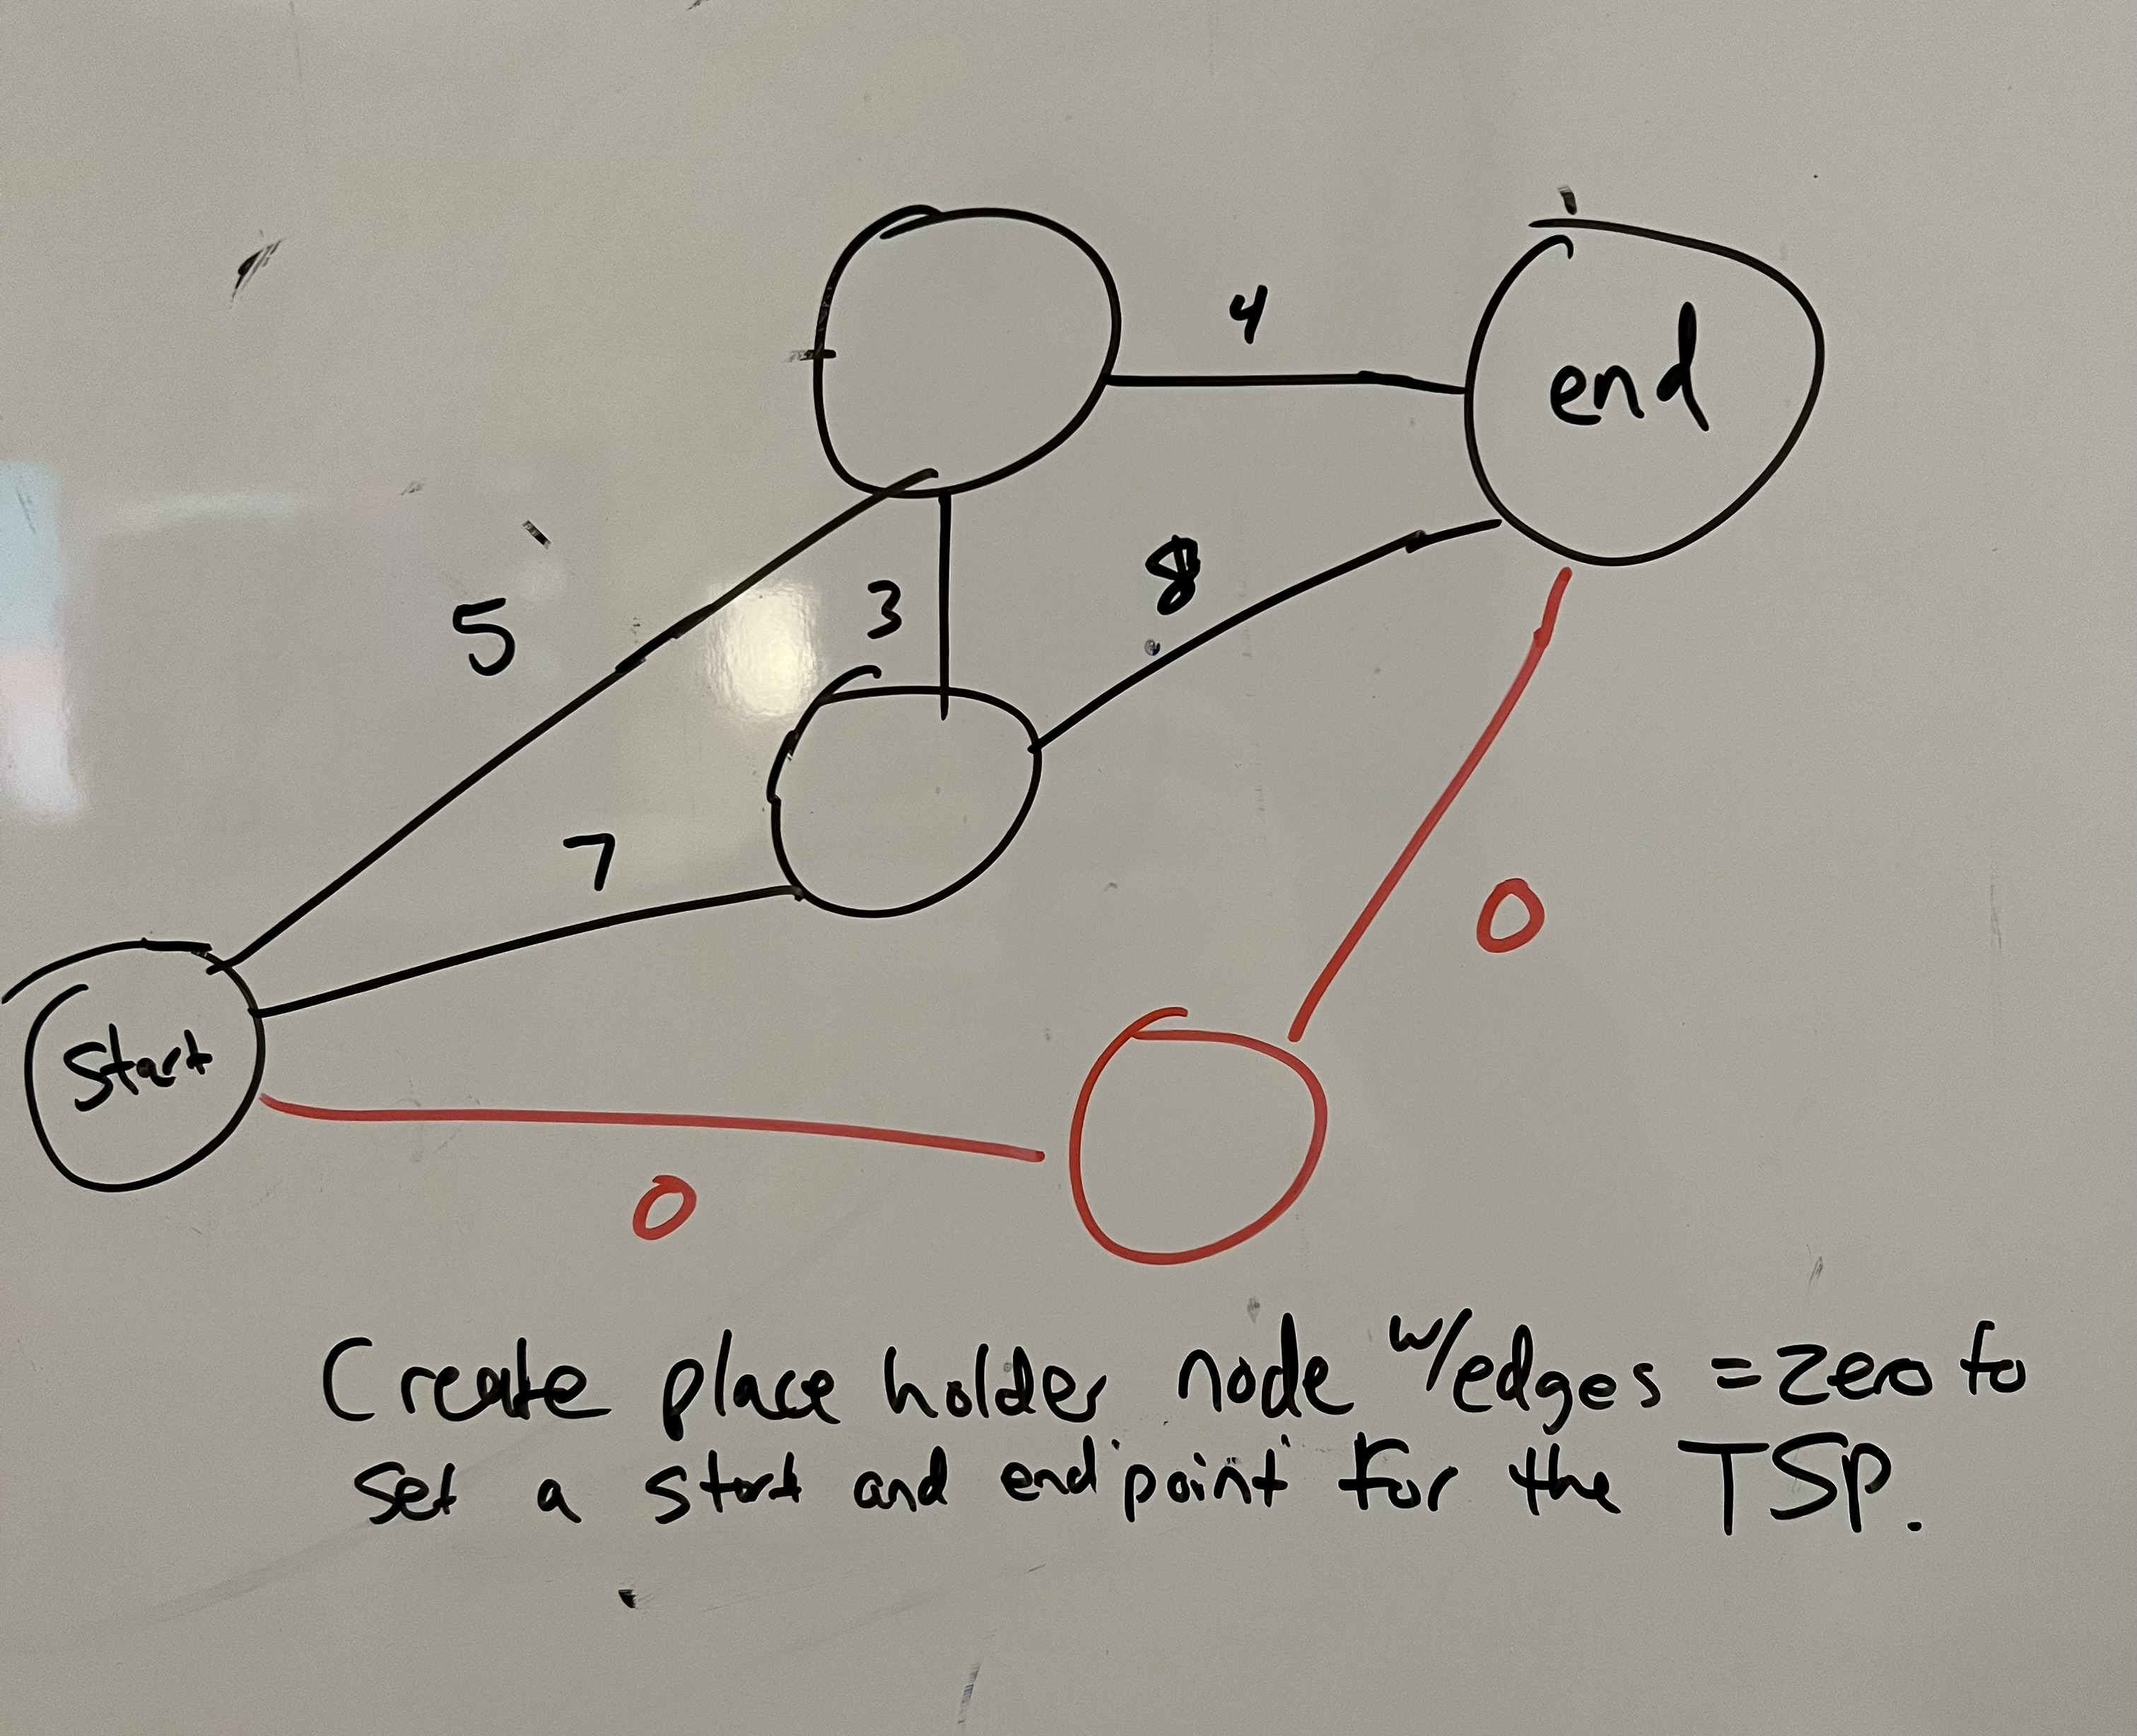 4
end
5
3
8
7
Start
0
0
Create place holder node w/edges = zero to
set a start and end point for the TSP.